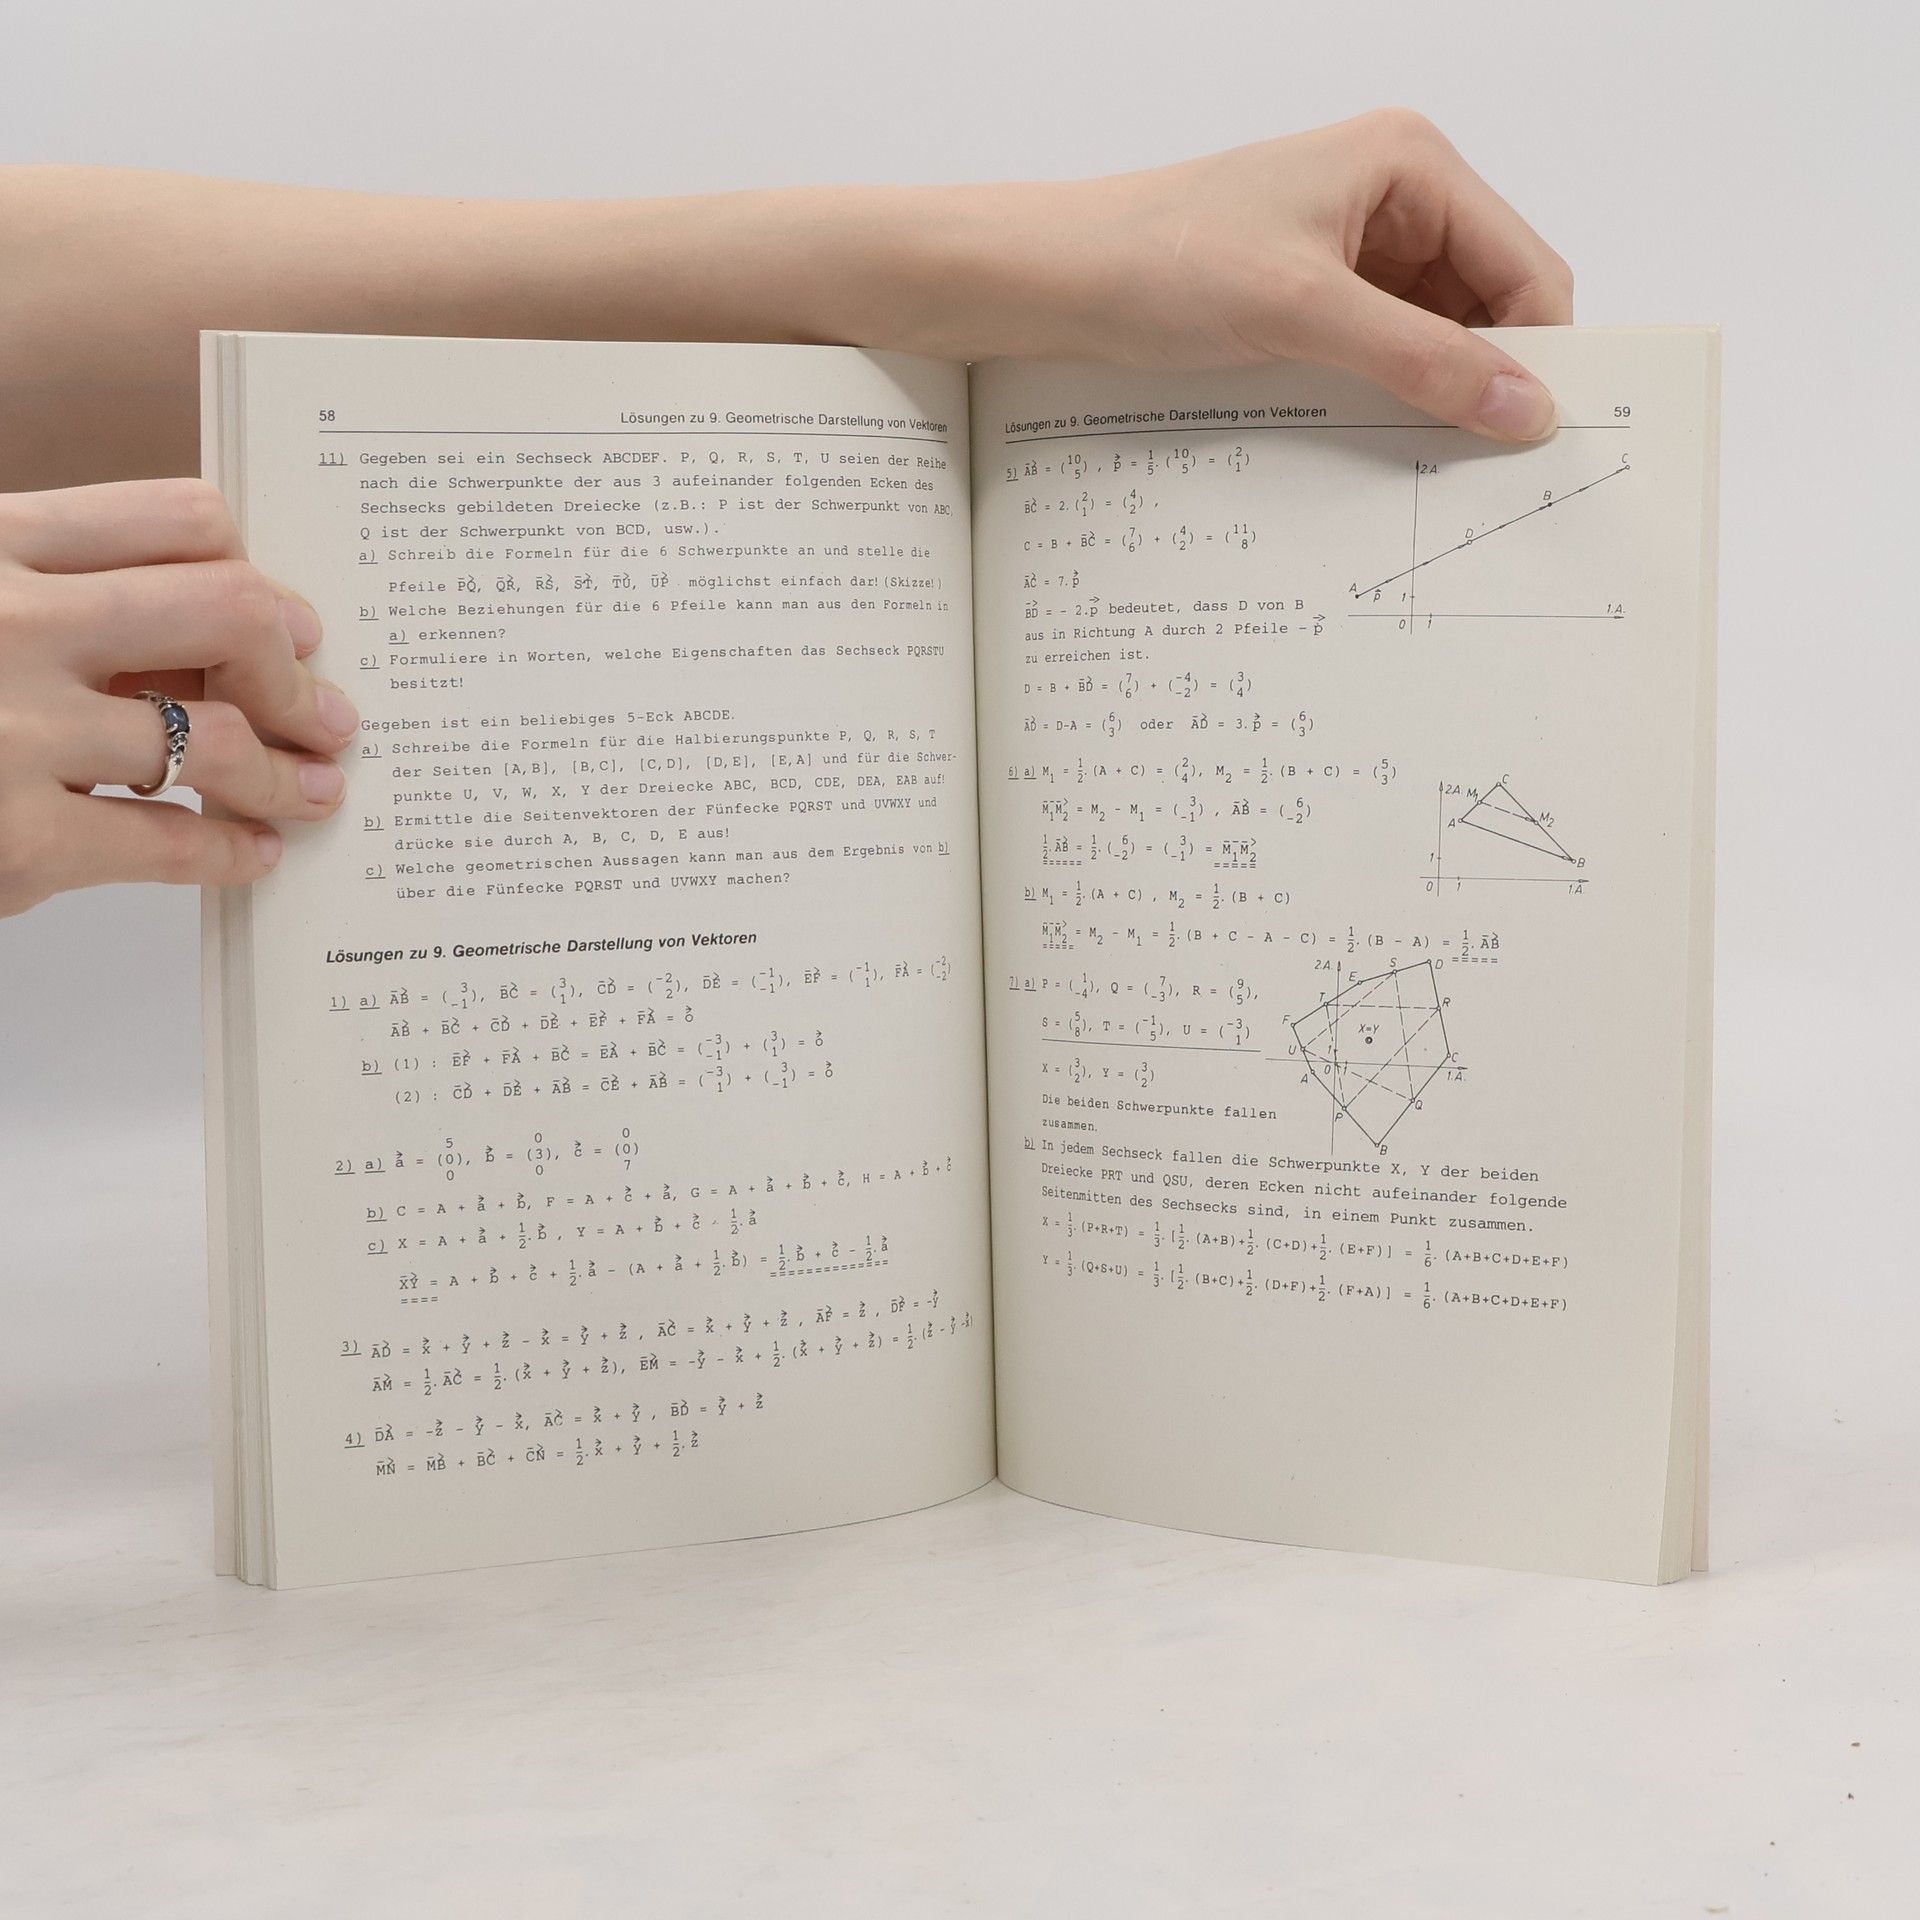 58 Lösungen zu 9. Geometrische Darstellung von Vektoren
11) Gegeben sei ein Sechseck ABCDEF. P, Q, R, S, T, U seien der Reihe
nach die Schwerpunkte der aus 3 aufeinander folgenden Ecken des
Sechsecks gebildeten Dreiecke (z.B.: P ist der Schwerpunkt von ABC,
Q ist der Schwerpunkt von BCD, usw.).
a) Schreib die Formeln für die 6 Schwerpunkte an und stelle die
Pfeile P⃗Q, Q⃗R, R⃗S, S⃗T, T⃗U, U⃗P möglichst einfach dar! (Skizze!)
b) Welche Beziehungen für die 6 Pfeile kann man aus den Formeln in
a) erkennen?
c) Formuliere in Worten, welche Eigenschaften das Sechseck PQRSTU
besitzt!
Gegeben ist ein beliebiges 5-Eck ABCDE.
a) Schreibe die Formeln für die Halbierungspunkte P, Q, R, S, T
der Seiten [A,B], [B,C], [C,D], [D,E], [E,A] und für die Schwer-
punkte U, V, W, X, Y der Dreiecke ABC, BCD, CDE, DEA, EAB auf!
b) Ermittle die Seitenvektoren der Fünfecke PQRST und UVWXY und
drücke sie durch A, B, C, D, E aus!
c) Welche geometrischen Aussagen kann man aus dem Ergebnis von b)
über die Fünfecke PQRST und UVWXY machen?
Lösungen zu 9. Geometrische Darstellung von Vektoren
1) a) A⃗B = (3 -1), B⃗C = (3 1), C⃗D = (-2 2), D⃗E = (-1 -1), E⃗F = (-1 1), F⃗A = (-2 -2)
A⃗B + B⃗C + C⃗D + D⃗E + E⃗F + F⃗A = o⃗
b) (1) : E⃗F + F⃗A + B⃗C = E⃗A + B⃗C = (-3 -1) + (3 1) = o⃗
(2) : C⃗D + D⃗E + A⃗B = C⃗E + A⃗B = (-3 1) + (3 -1) = o⃗
2) a) a⃗ = (5 0 0), b⃗ = (0 3 0), c⃗ = (0 0 7)
b) C = A + a⃗ + b⃗, F = A + c⃗ + a⃗, G = A + a⃗ + b⃗ + c⃗, H = A + b⃗ + c⃗
c) X = A + a⃗ + 1/2.b⃗ , Y = A + b⃗ + c⃗ 1/2.a⃗
X⃗Y = A + b⃗ + c⃗ + 1/2.a⃗ - (A + a⃗ + 1/2.b⃗) = 1/2.b⃗ + c⃗ - 1/2.a⃗
3) A⃗D = x⃗ + y⃗ + z⃗ - x⃗ = y⃗ + z⃗ , A⃗C = x⃗ + y⃗ + z⃗ , A⃗F = z⃗ , D⃗F = -y⃗
A⃗M = 1/2.A⃗C = 1/2.(x⃗ + y⃗ + z⃗), E⃗M = -y⃗ - x⃗ + 1/2.(x⃗ + y⃗ + z⃗) = 1/2.(z⃗ - y⃗ - x⃗)
4) D⃗A = -z⃗ - y⃗ - x⃗, A⃗C = x⃗ + y⃗ , B⃗D = y⃗ + z⃗
M⃗N = M⃗B + B⃗C + C⃗N = 1/2.x⃗ + y⃗ + 1/2.z⃗
Lösungen zu 9. Geometrische Darstellung von Vektoren 59
5) A⃗B = (10 5) , p⃗ = 1/5.(10 5) = (2 1)
B⃗C = 2.(2 1) = (4 2) ,
C = B + B⃗C = (7 6) + (4 2) = (11 8)
A⃗C = 7.p⃗
B⃗D = - 2.p⃗ bedeutet, dass D von B
aus in Richtung A durch 2 Pfeile - p⃗
zu erreichen ist.
D = B + B⃗D = (7 6) + (-4 -2) = (3 4)
A⃗D = D-A = (6 3) oder A⃗D = 3.p⃗ = (6 3)
2.A.
C
B
D
A
p⃗
1
0
1
1.A.
6) a) M1 = 1/2.(A + C) = (2 4), M2 = 1/2.(B + C) = (5 3)
M1⃗M2 = M2 - M1 = (3 -1) , A⃗B = (6 -2)
1/2.A⃗B = 1/2.(6 -2) = (3 -1) = M1⃗M2
b) M1 = 1/2.(A + C) , M2 = 1/2.(B + C)
M1⃗M2 = M2 - M1 = 1/2.(B + C - A - C) = 1/2.(B - A) = 1/2.A⃗B
2.A.
M1
C
A
M2
B
1
0
1
1.A.
7) a) P = (1 -4), Q = (7 -3), R = (9 5),
S = (5 8), T = (-1 5), U = (-3 1)
X = (3 2), Y = (3 2)
Die beiden Schwerpunkte fallen
zusammen.
2.A.
E
S
D
T
R
F
X=Y
U
1
C
0
1
1.A.
A
P
Q
B
b) In jedem Sechseck fallen die Schwerpunkte X, Y der beiden
Dreiecke PRT und QSU, deren Ecken nicht aufeinander folgende
Seitenmitten des Sechsecks sind, in einem Punkt zusammen.
X = 1/3.(P+R+T) = 1/3.[1/2.(A+B)+1/2.(C+D)+1/2.(E+F)] = 1/6.(A+B+C+D+E+F)
Y = 1/3.(Q+S+U) = 1/3.[1/2.(B+C)+1/2.(D+F)+1/2.(F+A)] = 1/6.(A+B+C+D+E+F)